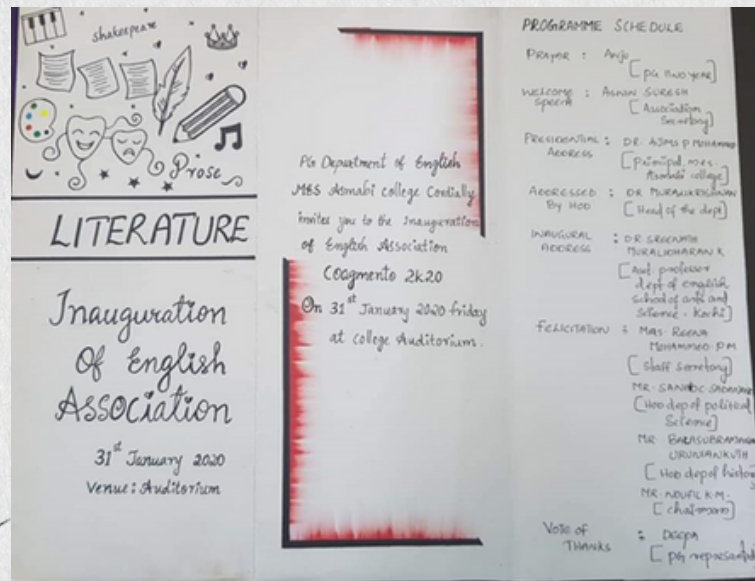 shakespeare
Prose
LITERATURE
Inauguration
Of English
ASSOCIATION
31st January 2020
Venue: Auditorium
PG Department of English
MES Asmabi college Cordially
invites you to the Inauguration
of English Association
Coagmento 2k20
On 31st January 2020 friday
at College Auditorium.
PROGRAMME SCHEDULE
PRAYOR : Anju
[PG two year]
WELCOME : SURESH
Speech [Association
Secretary]
PRESIDENTIAL : DR. P MOHAMMED
ADDRESS [principal, mes
Asmabi college]
ADDRESSED : DR MURALIKRISHNAN
By HOD [Head of the dept]
INAUGURAL : DR SREENATH
ADDRESS MURALIDHARAN K
[Asst. professor
dept of english
school of arts and
Science. Kochi]
FELICITATION : MRS. REENA
MOHAMMED P.M
[Staff Secretary]
MR.
[Hod dep of political
Science]
MR
[Hod dep of history
MR. NOUFIL K.M.
[chairman]
VOTE OF : DEEPA
THANKS [PG